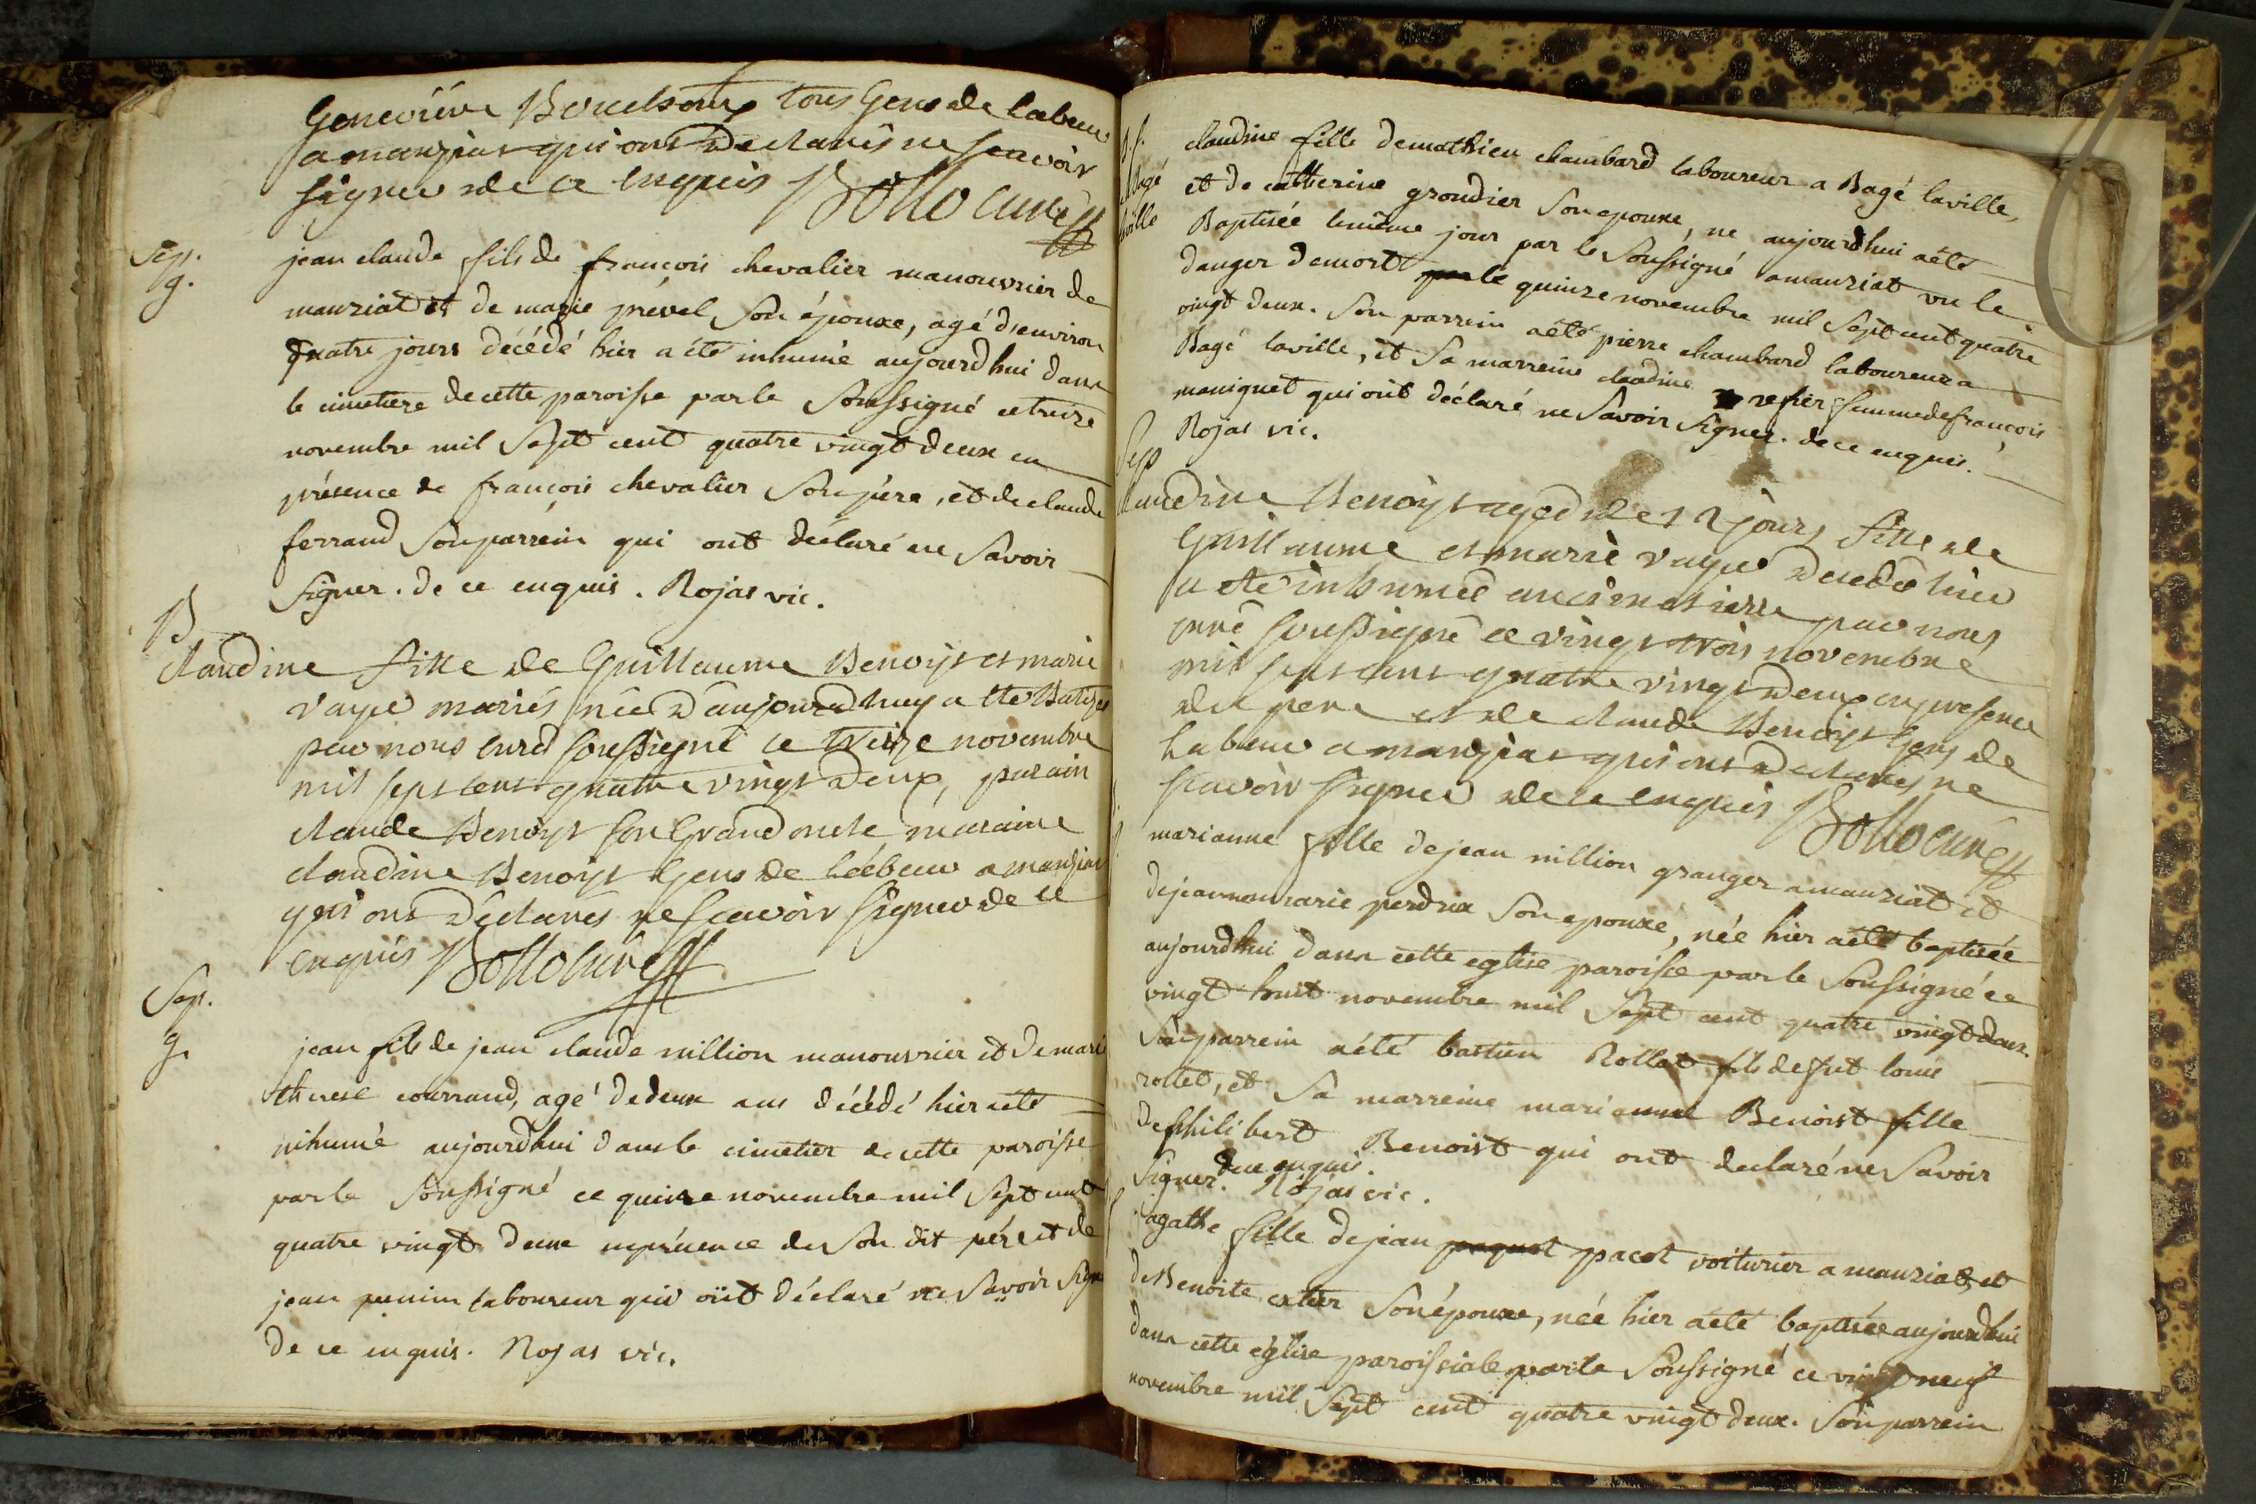 Genevieve tous Gens de labeur
a manziat qui ont declarés ne scavoir
signer de ce enquis Bollo curé
Sep.
g.
jean claude fils de françois chevalier manouvrier de
manziat et de marie prével son épouxe, agé d'environ
quatre jours décédé hier a été inhumé aujourd'hui dans
le cimetiere de cette paroisse par le soussigné ce treize
novembre mil sept cent quatre vingt deux en
présence de françois chevalier son père, et de claude
ferrand son parrein qui ont déclaré ne savoir
signer. de ce enquis. Rojas vic.
B
claudine fille de Guillaume Benoist et marie
vayer mariés née d'aujourd'huy a ete Batizée
par nous curé soussigné ce treize novembre
mil sept cent quatre vingt deux, parain
claude Benoyt son Grand oncle maraine
claudine Benoyt Gens de labeur a manziat
qui ont déclarés ne scavoir signer de ce
enquis Bollo curé
Sep.
g.
jean fils de jean claude million manouvrier et de marie
therese courrand, agé de deux ans décédé hier a été
inhumé aujourd'hui dans le cimetier de cette paroisse
par le soussigné ce quinze novembre mil sept cent
quatre vingt deux en présence de son dit père et de
jean laboureur qui ont déclaré ne savoir signer
de ce enquis. Rojas vic.
claudine fille de mathieu chambard laboureur a Bagé laville,
et de catherine grondier son epouxe, ne aujourdhui a été
Baptisée le même jour par le soussigné a manziat vu le
danger de mort le quinze novembre mil sept cent quatre
vingt deux. Son parrein a été pierre chambard laboureur a
Bagé laville, et sa marreine claudine femme de françois
maniguet qui ont déclaré ne savoir signer. de ce enquis.
Rojas vic.
Sep
claudine Benoyt aged de 12 jours fille de
Guillaume et marie vayer decedé hier
a ete inhumée au cimetierre par nous
curé soussigné ce vingt trois novembre
mil sept cent quatre vingt deux en presence
du pere et de claude Benoyt Gens de
labeur a manziat qui ont declarés ne
scavoir signer de ce enquis Bollo curé
marianne fille de jean million granger a manziat et
de jeanne marie perdrix son epouxe, née hier a été baptisée
aujourd'hui dans cette eglise paroisse par le soussigné ce
vingt huit novembre mil sept cent quatre vingt deux.
Son parrein a été bastien Rollet fils de fut louis
rollet, et sa marreine marianne Benoist fille
de philibert Benoist qui ont declaré ne savoir
signer. de ce enquis. Rojas vic.
agathe fille de jean paquot pacot voiturier a manziat, et
de Benoite son épouxe, née hier a été baptisée aujourdhui
dans cette église paroissiale par le soussigné ce vingt neuf
novembre mil sept cent quatre vingt deux. Son parrein